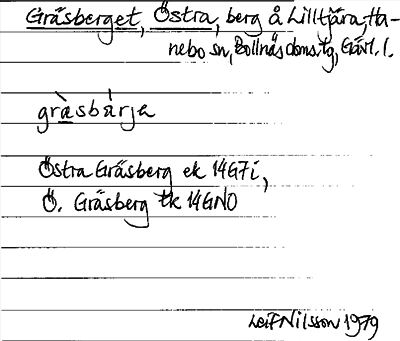 Gräsberget, Östra, berg å Lilltjära, Ha-
nebo sn, Bollnäs doms. tg, Gävl. l.
græ̀sbárja
Östra Gräsberg ek 14G7i,
Ö. Gräsberg tk 14GNO
Leif Nilsson 1979